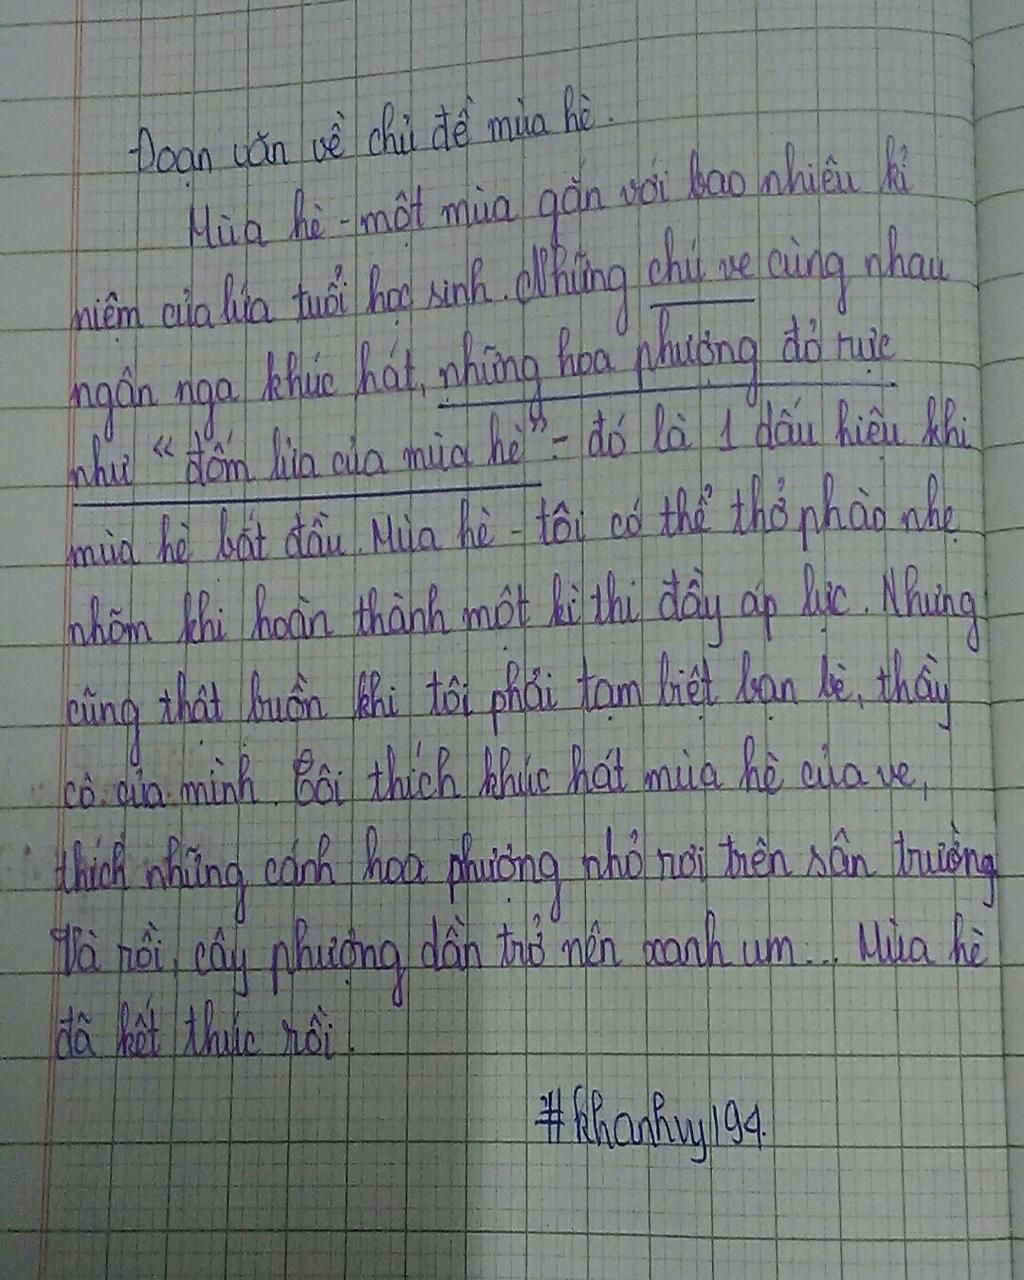 Đoạn văn về chủ đề mùa hè.
Mùa hè - một mùa gắn với bao nhiêu kỉ
niệm của lứa tuổi học sinh. Những chú ve cùng nhau
ngân nga khúc hát, những hoa phượng đỏ rực
như "đốm lửa của mùa hè" - đó là 1 dấu hiệu khi
mùa hè bắt đầu. Mùa hè - tôi có thể thở phào nhẹ
nhõm khi hoàn thành một kì thi đầy áp lực. Nhưng
cũng thật buồn khi tôi phải tạm biệt bạn bè, thầy
cô của mình. Tôi thích khúc hát mùa hè của ve,
thích những cánh hoa phượng nhỏ rơi trên sân trường
Và rồi, cây phượng dần trở nên xanh um... Mùa hè
đã kết thúc rồi.
#khanhvy194.